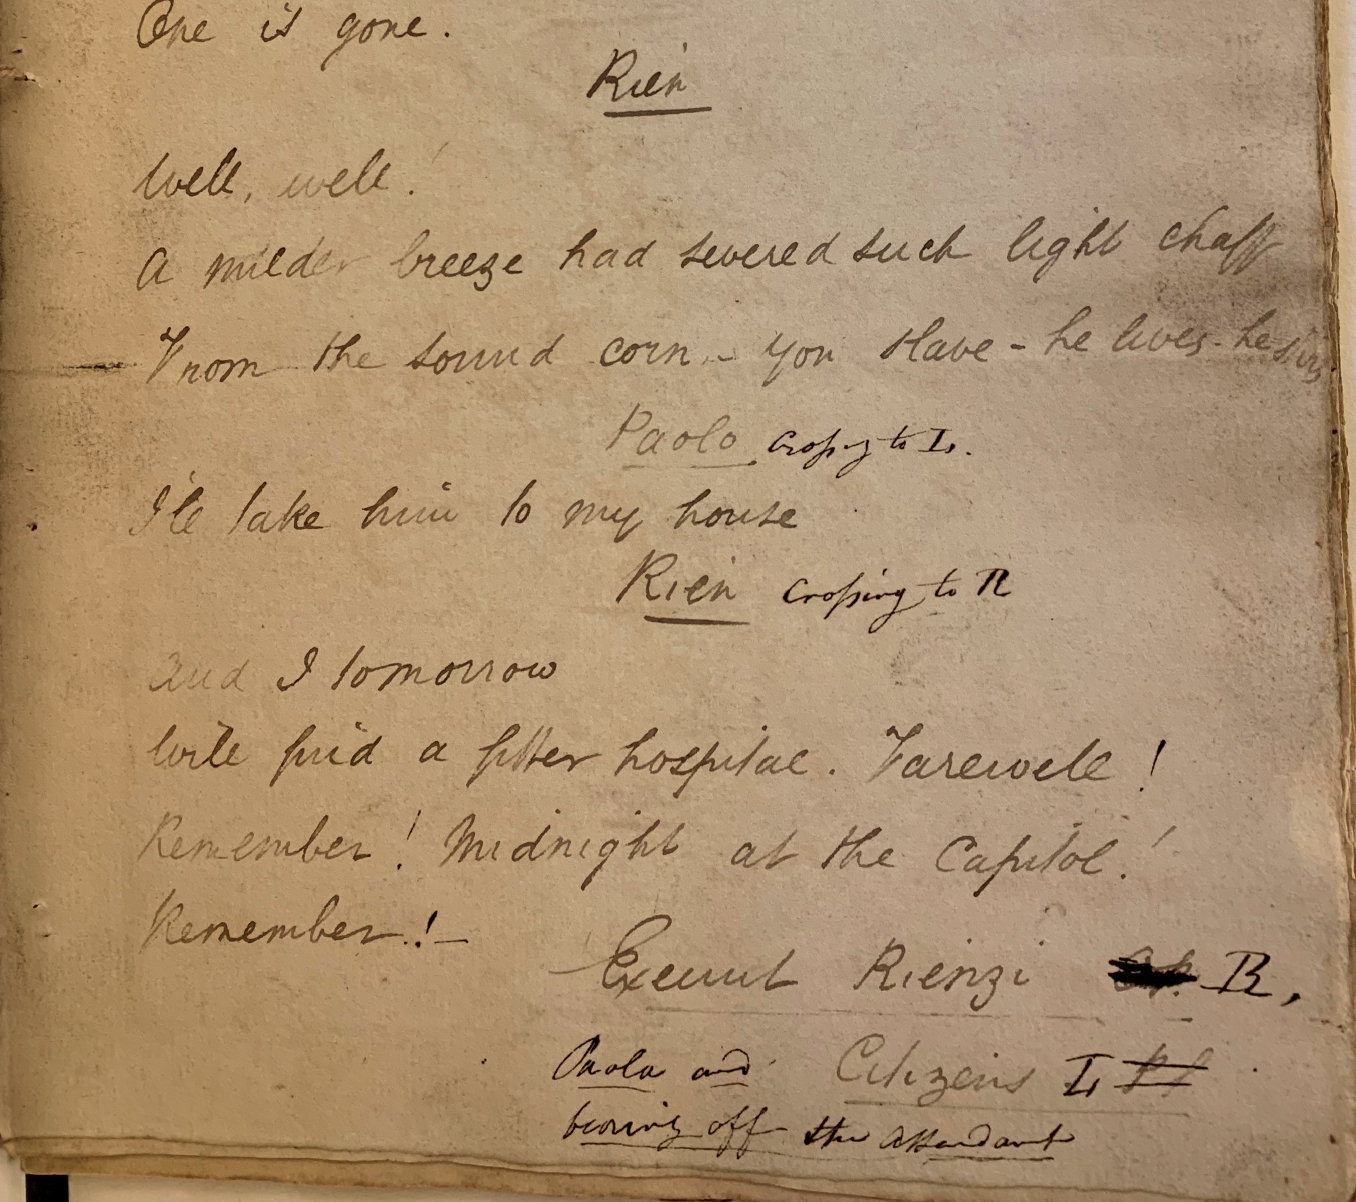 One is gone.
Rien
Well, well!
A milder breeze had severed such light chaff
From the sound corn - you slave - he lives - he stirs
Paolo crossing to L.
I'le take him to my house
Rien crossing to R
and I tomorrow
Will find a fitter hospital. Farewell!
Remember! Midnight at the Capitol!
Remember! -
Exeunt Rienzi R,
Paolo and Citizens L
bearing off the attendant